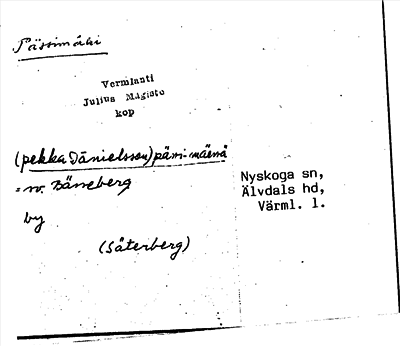 Pässimäki
Vermlanti
Julius Mägiste
kop
(pekka Danielsson) pässi-mäessä
= sv. Bässeberg
by
(Säterberg)
Nyskoga sn,
Älvdals hd,
Värml. l.